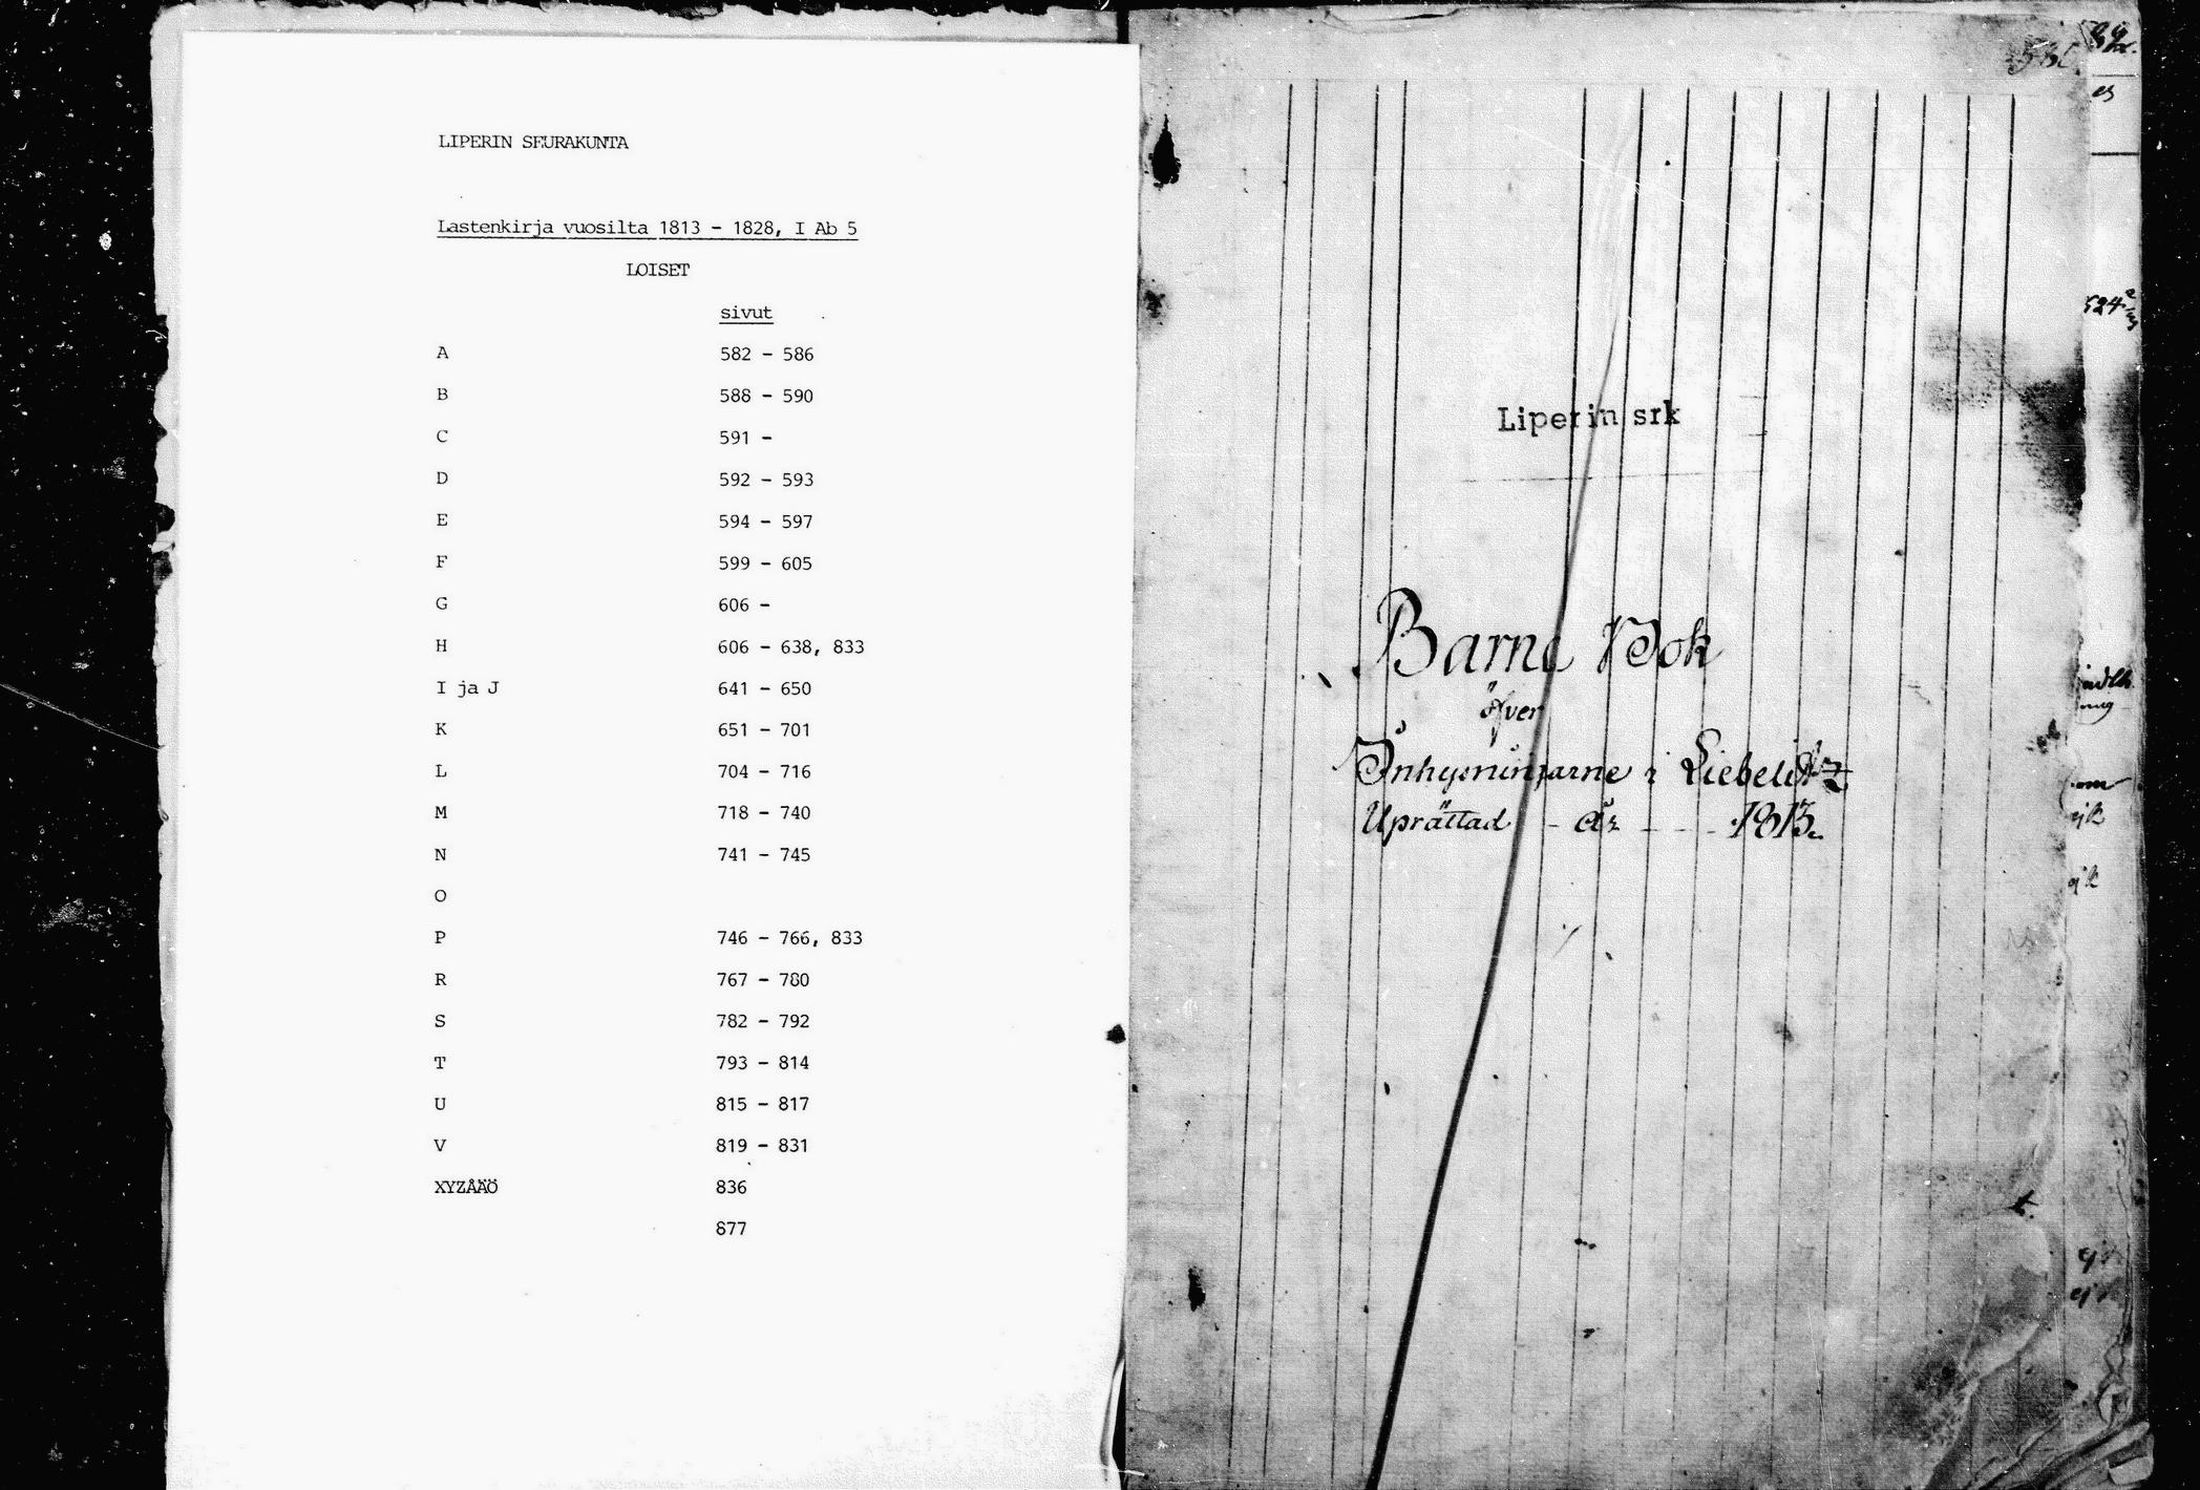 LIPERIN SEURAKUNTA
Lastenkirja vuosilta 1813 - 1828, I Ab 5
LOISET
sivut
A 582 - 586
B 588 - 590
C 591 -
D 592 - 593
E 594 - 597
F 599 - 605
G 606 -
H 606 - 638, 833
I ja J 641 - 650
K 651 - 701
L 704 - 716
M 718 - 740
N 741 - 745
O
P 746 - 766, 833
R 767 - 780
S 782 - 792
T 793 - 814
U 815 - 817
V 819 - 831
XYZÅÄÖ 836
877
Liperin srk
Barne Bok
öfver
Inhysningarne i Liebelitz
Uprättad - år - - - 1813.
524